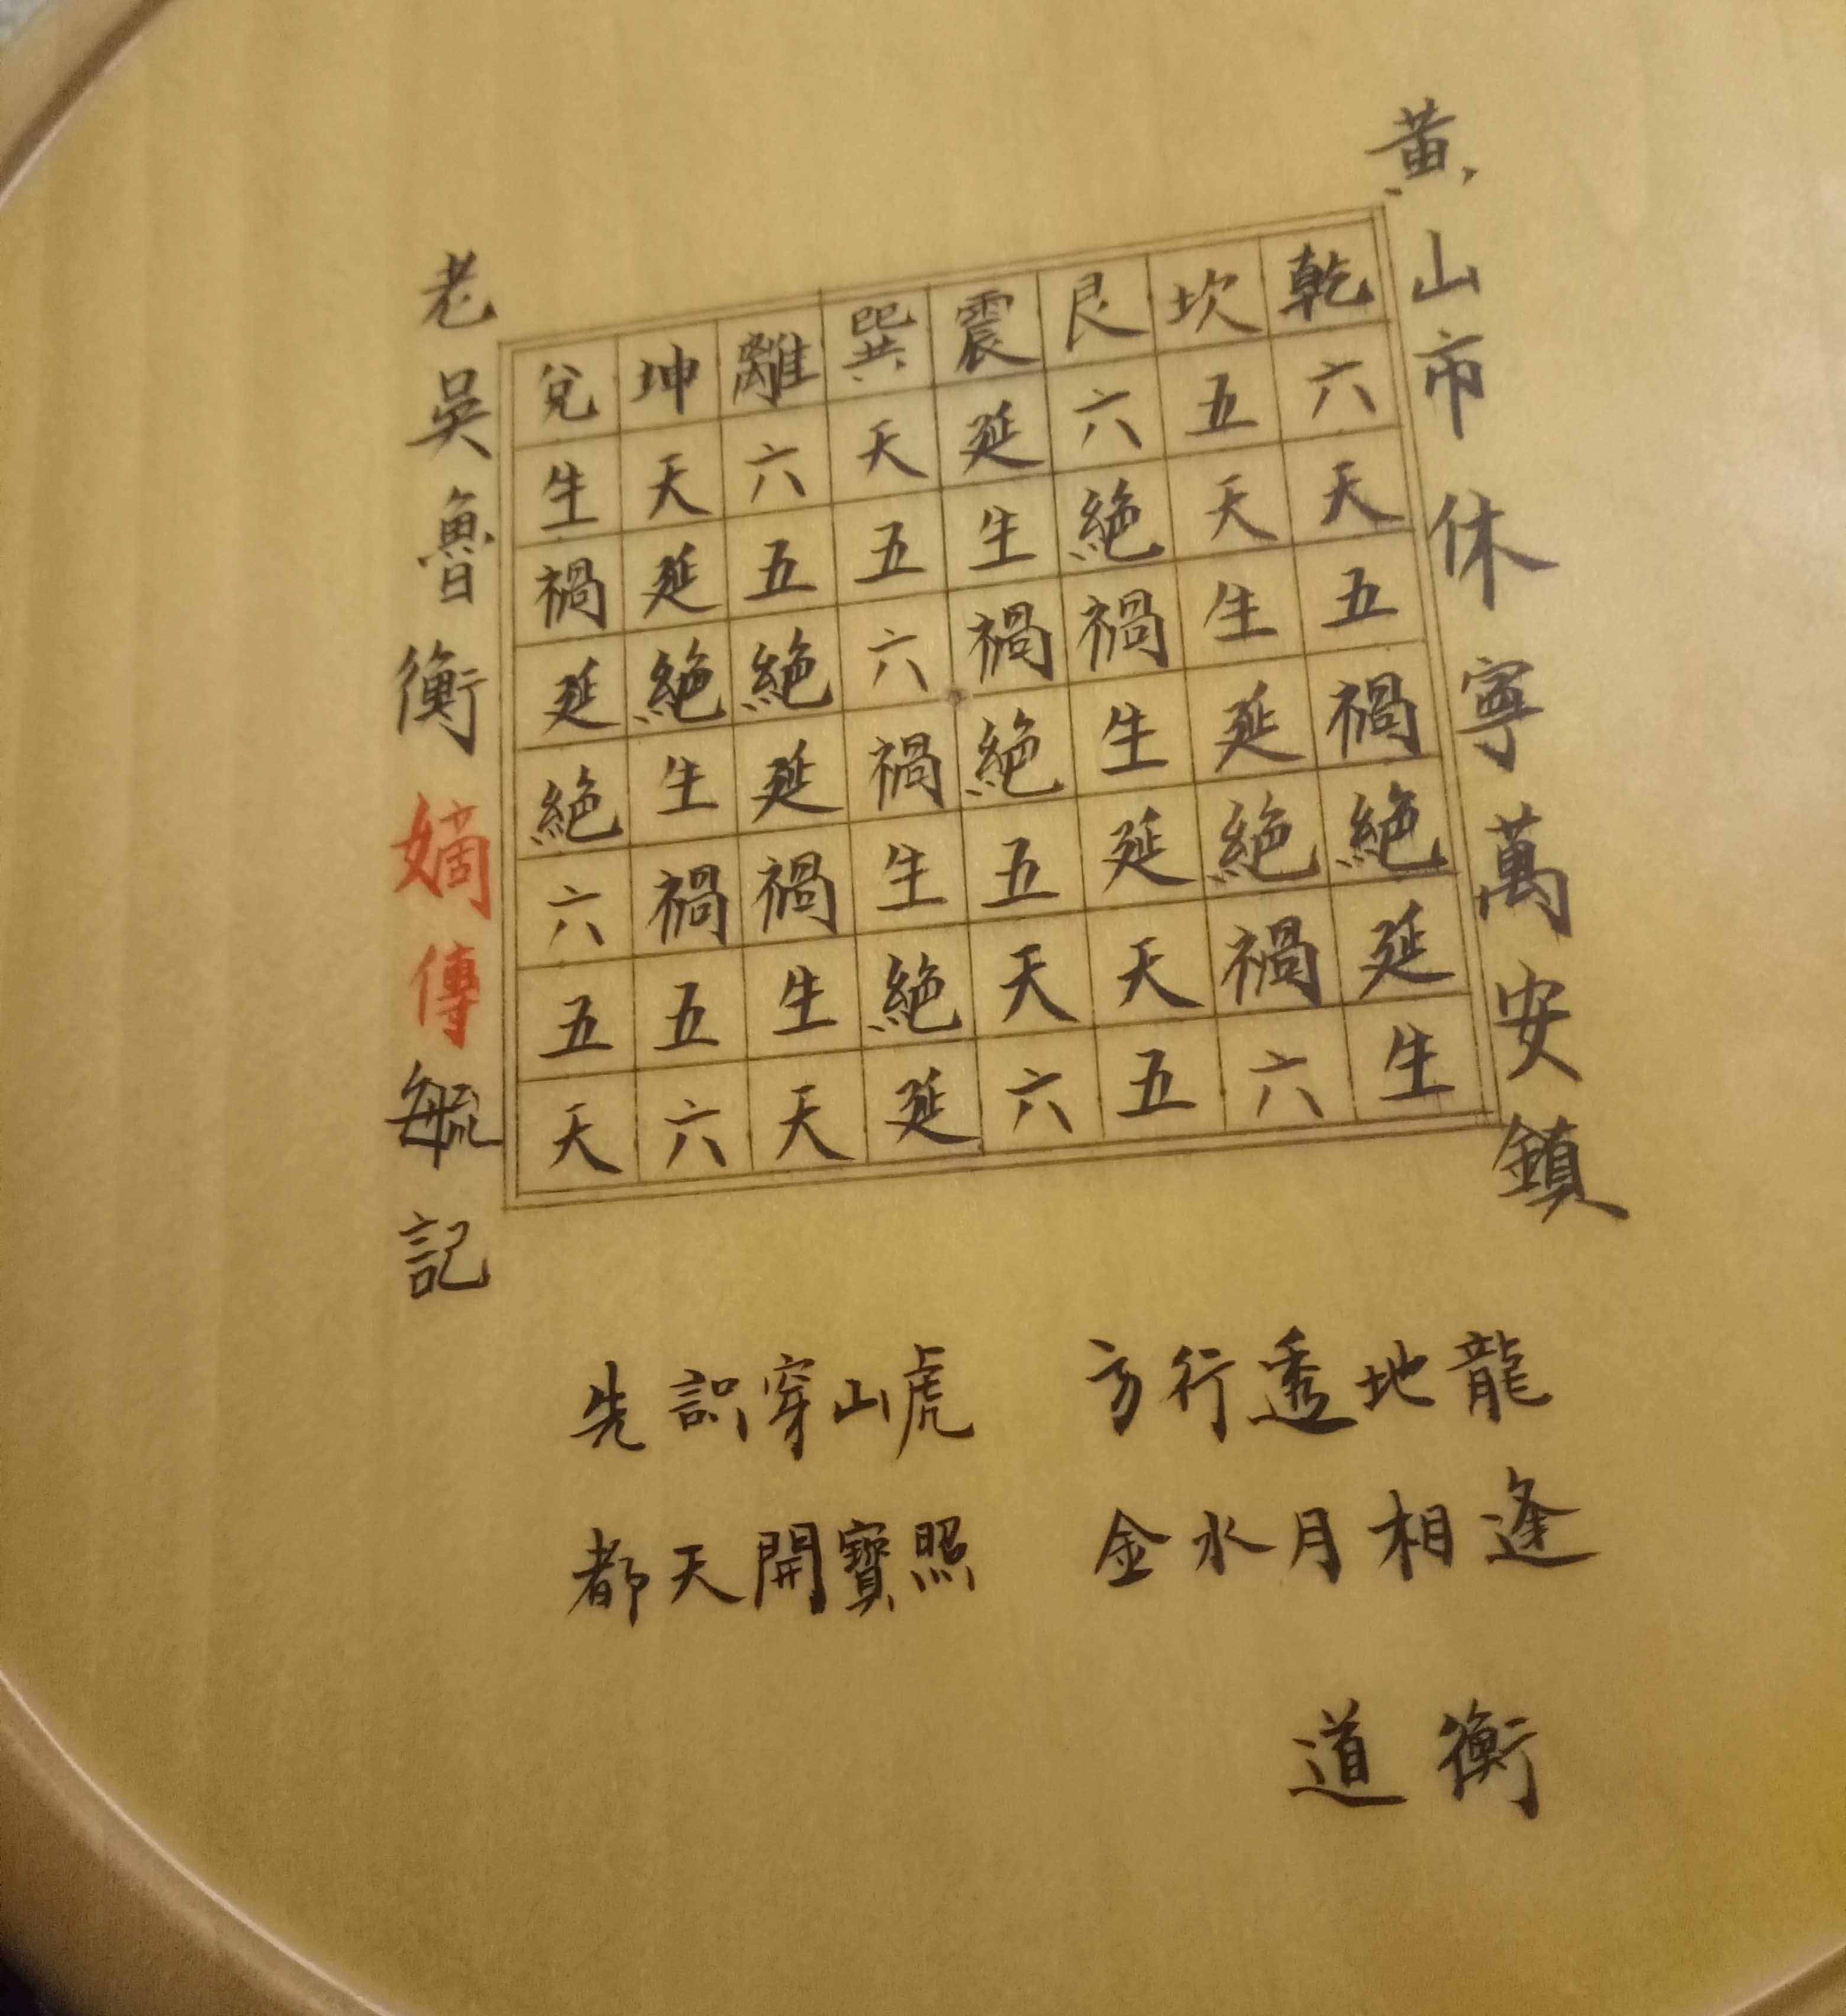 黄山市休寧萬安鎮
乾六天五禍絶延生
坎五天生延絶禍六
艮六絶禍生延天五
震延生禍絶五天六
巽天五六禍生絶延
離六五絶延禍生天
坤天延絶生禍五六
兌生禍延絶六五天
老吳魯衡嫡傳毓記
先識穿山虎 方行透地龍
都天開寶照 金水月相逢
道衡